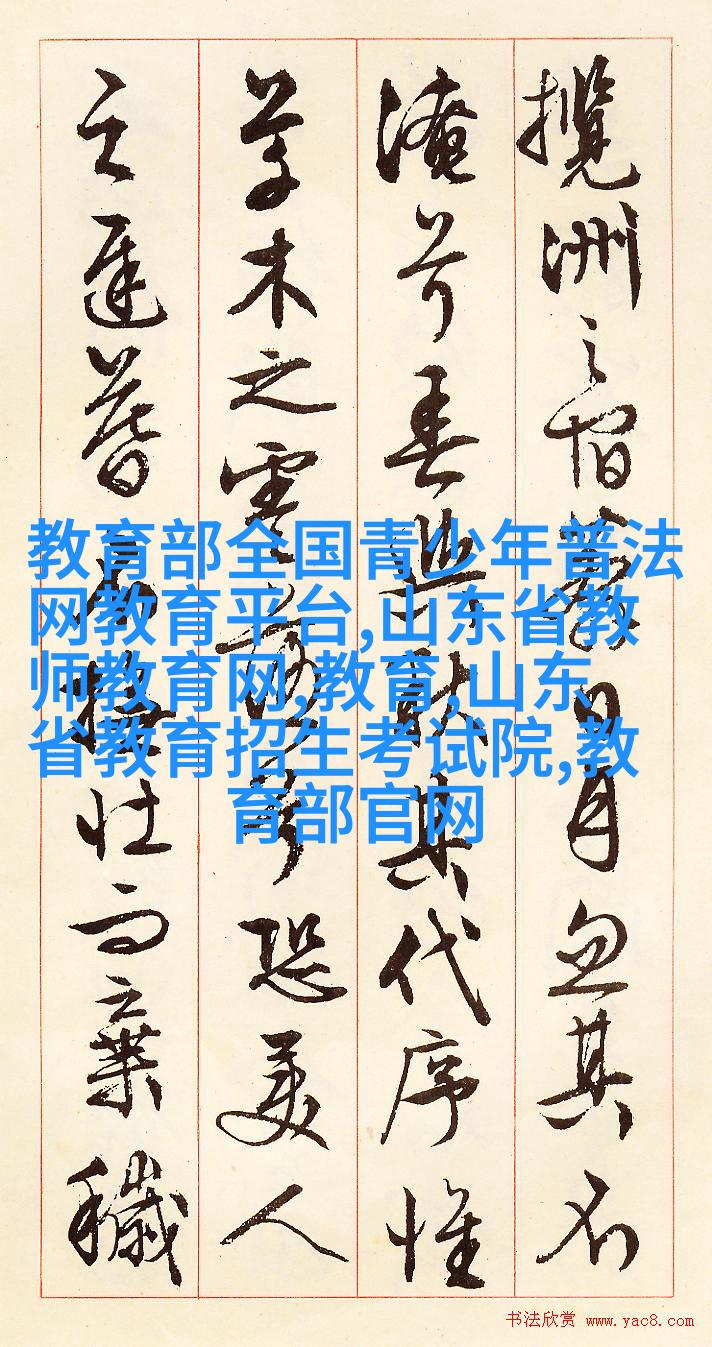 攬洲之宿莽日月忽其不
淹兮春與秋其代序惟
草木之零落兮恐美人
之遲暮不撫壯而棄穢
教育部全国青少年普法
网教育平台,山东省教
师教育网,教育,山东
省教育招生考试院,教
育部官网
书法欣赏 www.yac8.com